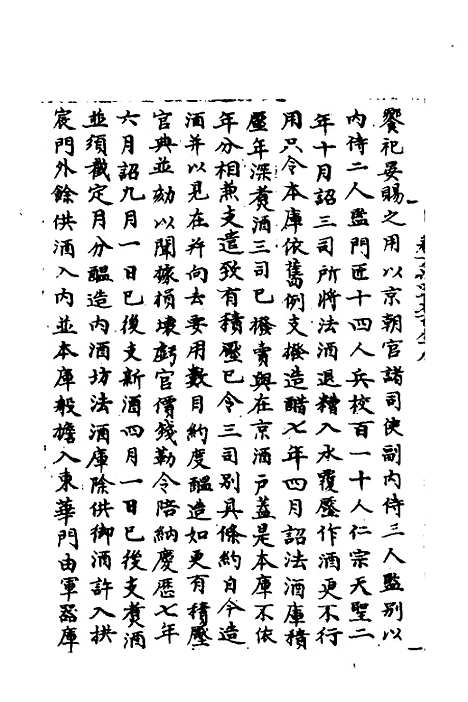 饗祀宴賜之用以京朝官諸司使副內侍三人監别以
内侍二人監門匠十四人兵校百一十人仁宗天聖二
年十月詔三司所將法酒退糟入水覆壓作酒更不行
用只令本庫依舊例支撥造醋七年四月詔法酒庫積
壓年深煑酒三司已撥賣與在京酒戸盖是本庫不依
年分相兼支遣致有積壓已令三司别具條約自今造
酒并以見在并向去要用數目約度醖造如更有積壓
官典並劾以聞據損壊虧官價錢勒令陪納慶歷七年
六月詔九月一日已後支新酒四月一日已後支煑酒
並須截定月分醖造内酒坊法酒庫除供御酒許入拱
宸門外餘供酒入内並本庫般擔入東華門由軍器庫